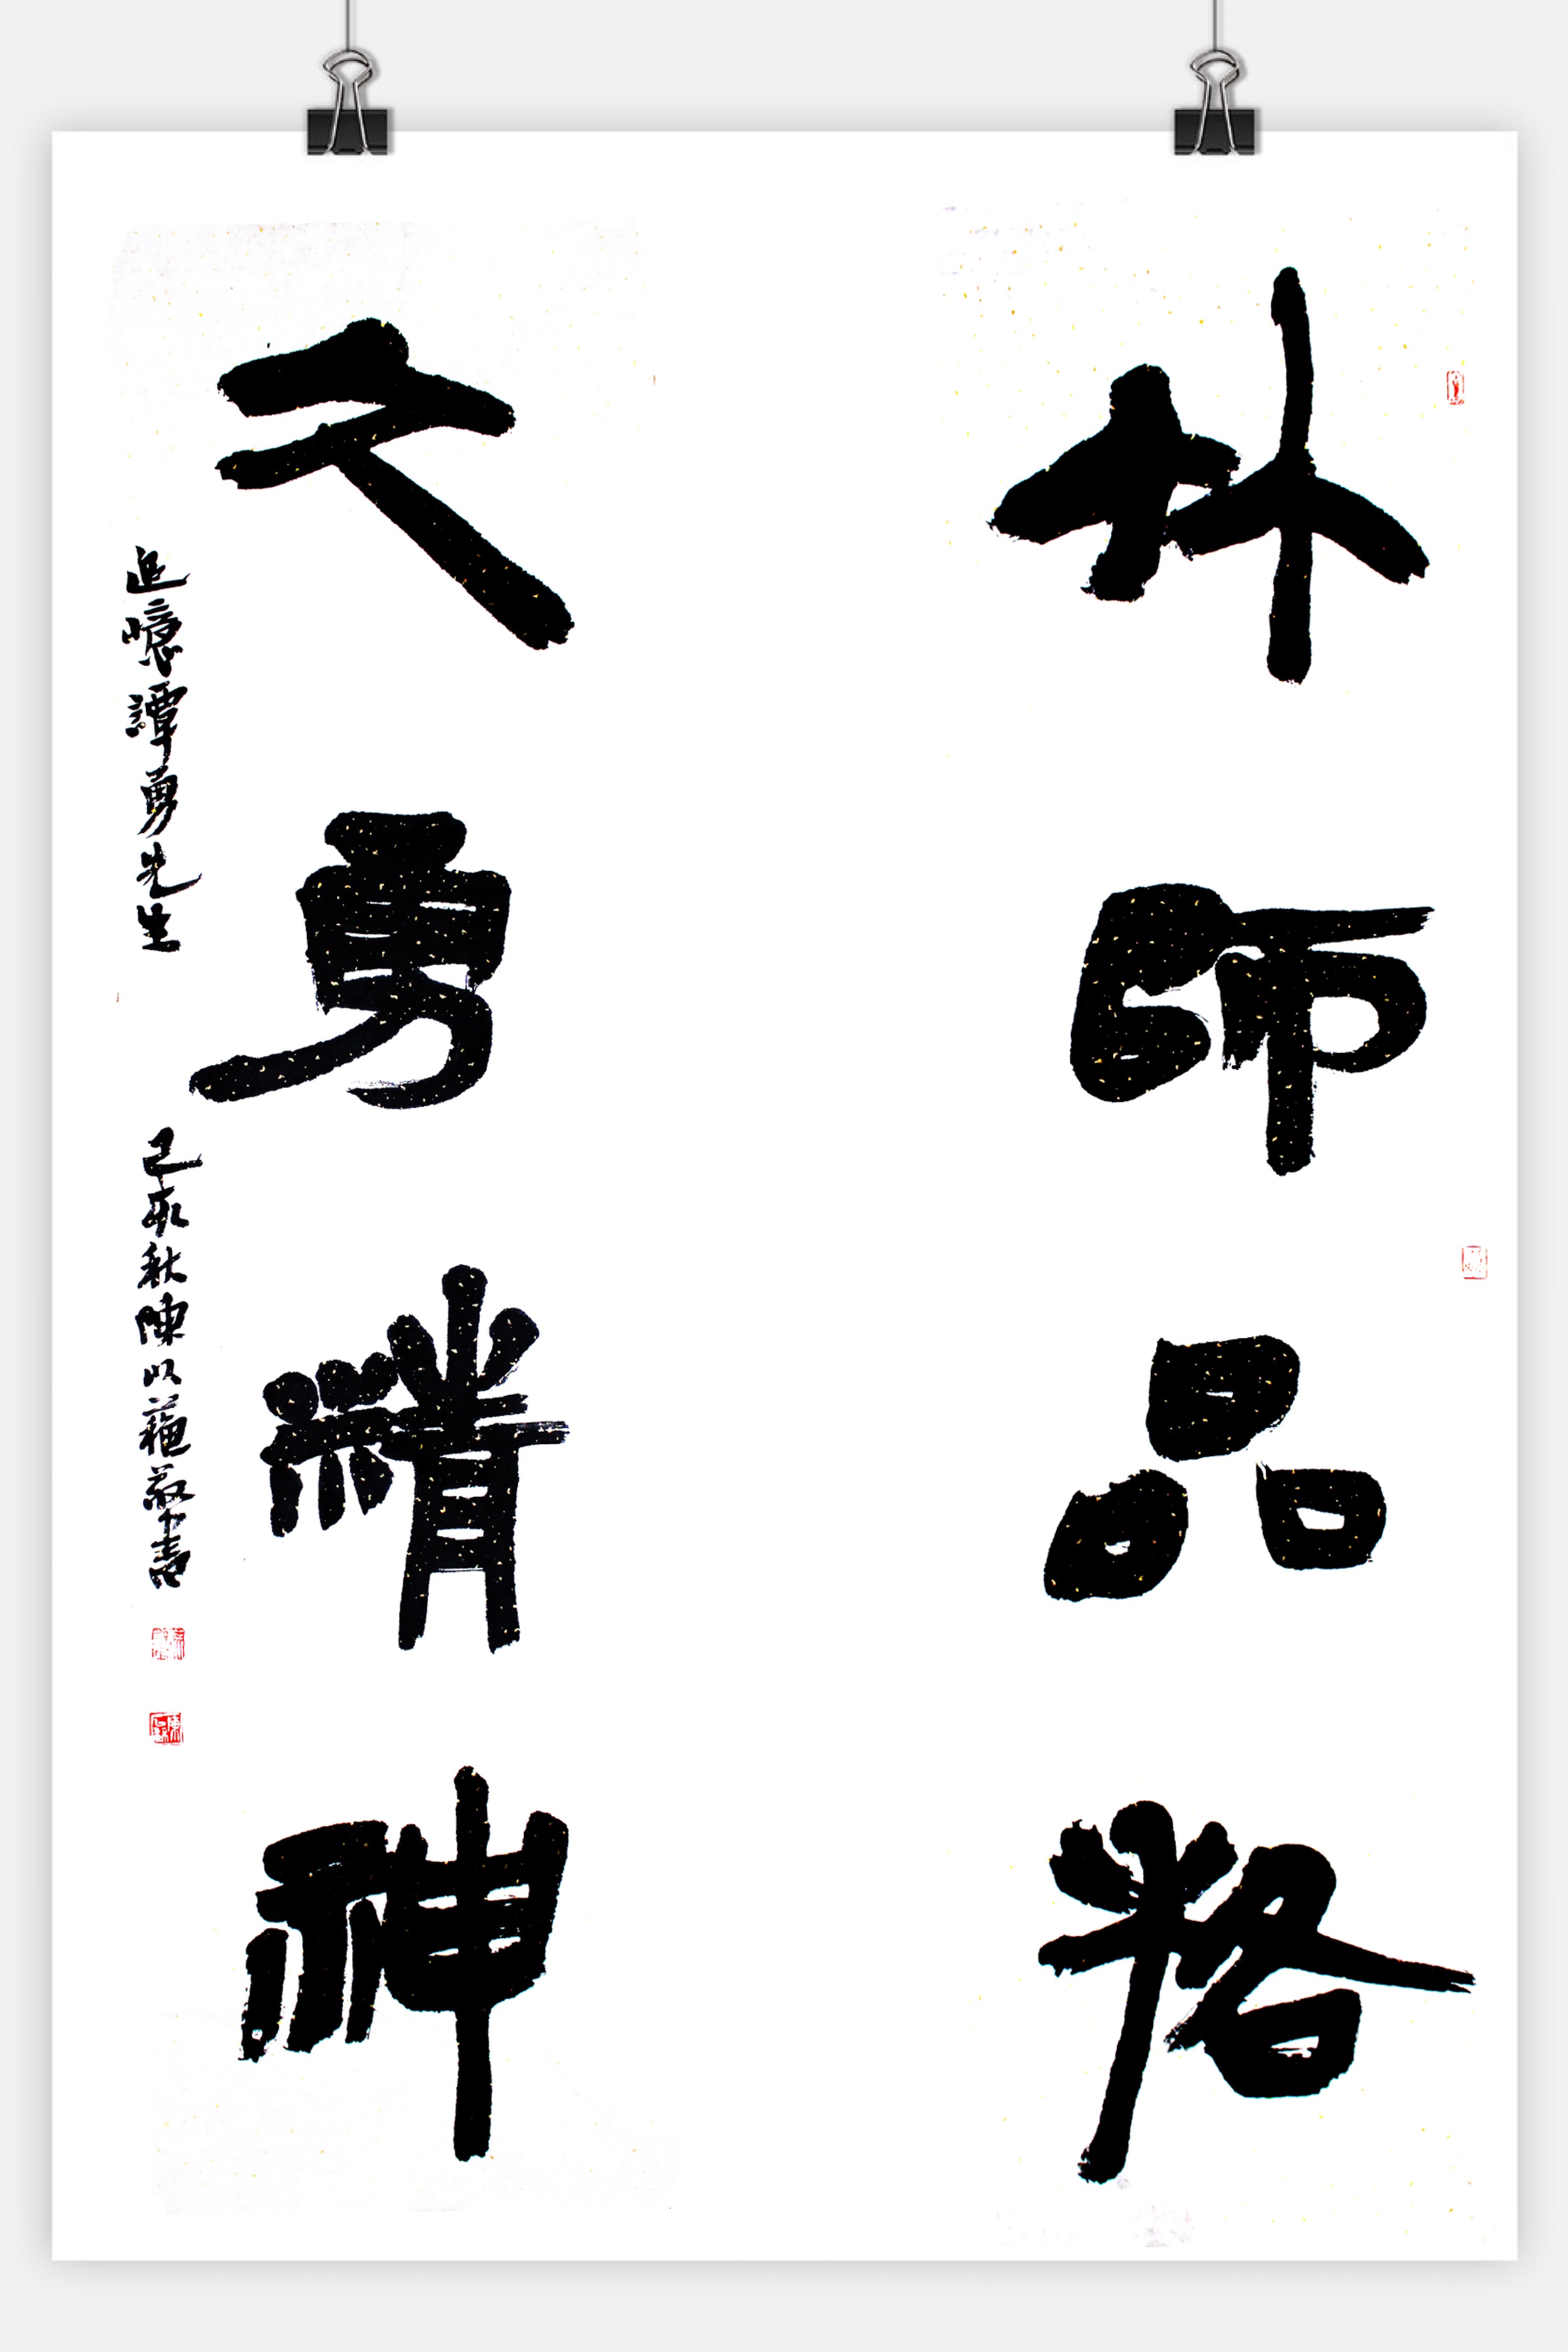 林師品格
久勇精神
追憶譚勇先生
己亥秋陳以敬書